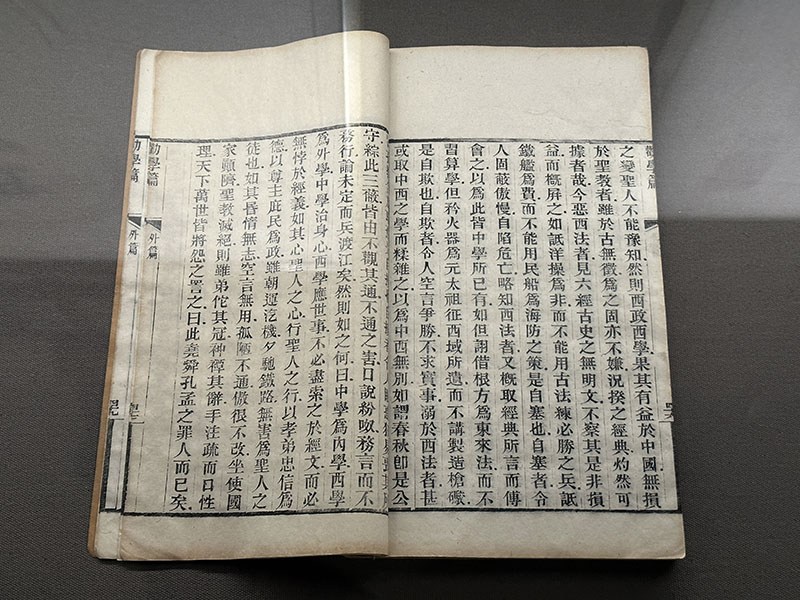 勸學篇
之變聖人不能豫知然則西政西學果其有益於中國無損
於聖教者雖於古無徵爲之固亦不嫌況揆之經典灼然可
據者哉今惡西法者見六經古史之無明文不察其是非損
益而槪屏之如詆洋操爲非而不能用古法練必勝之兵詆
鐵艦爲費而不能用民船爲海防之策是自塞也自塞者令
人固蔽傲慢自陷危亡略知西法者又槪取經典所言而傅
會之以爲此皆中學所已有如但詡借根方爲東來法而不
習算學但矜火器爲元太祖征西域所遺而不講製造槍礮
是自欺也自欺者令人空言爭勝不求實事溺於西法者甚
或取中西之學而糅雜之以爲中西無別如謂春秋卽是公
守綜此三蔽皆由不觀其通不通之害口說紛呶務言而不
務行論未定而兵渡江矣然則如之何曰中學爲內學西學
爲外學中學治身心西學應世事不必盡索之於經文而必
無悖於經義如其心聖人之心行聖人之行以孝弟忠信爲
德以尊主庇民爲政雖朝運汽機夕馳鐵路無害爲聖人之
徒也如其昏惰無志空言無用孤陋不通傲很不改坐使國
家顚隮聖教滅絕則雖弟佗其冠神禫其辭手注疏而口性
理天下萬世皆將怨之詈之曰此堯舜孔孟之罪人而已矣
勸學篇 外篇
勸學篇 外篇